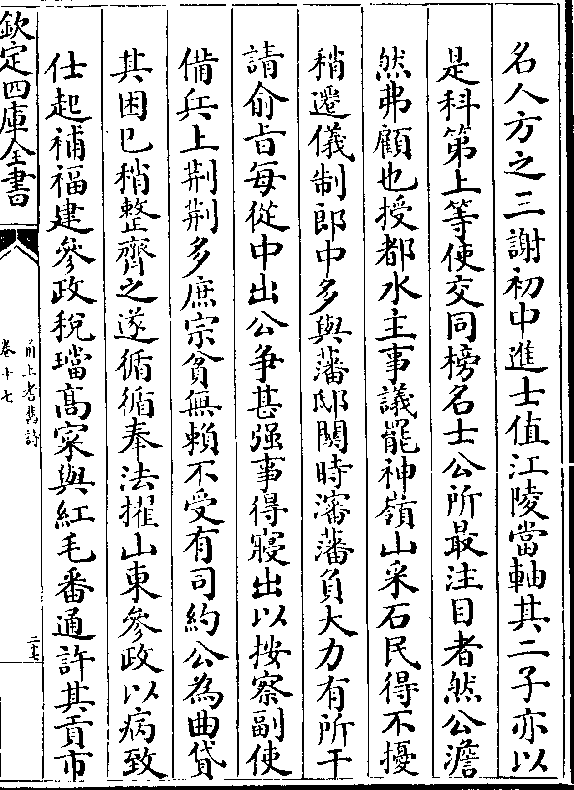 名人方之三謝初中進士值江陵當軸其二子亦以
是科第上等使交同榜名士公所最注目者然公澹
然弗顧也授都水主事議罷神嶺山采石民得不擾
稍遷儀制郎中多與藩邸關時瀋藩負大力有所干
請俞旨每從中出公爭甚强事得寢出以按察副使
備兵上荆荆多庶宗貧無賴不受有司約公為曲貸
其困已稍整齊之遂循循奉法擢山東參政以病致
仕起補福建參政稅璫高寀與紅毛番通許其貢市
欽定四庫全書
甬上耆舊詩
卷十七